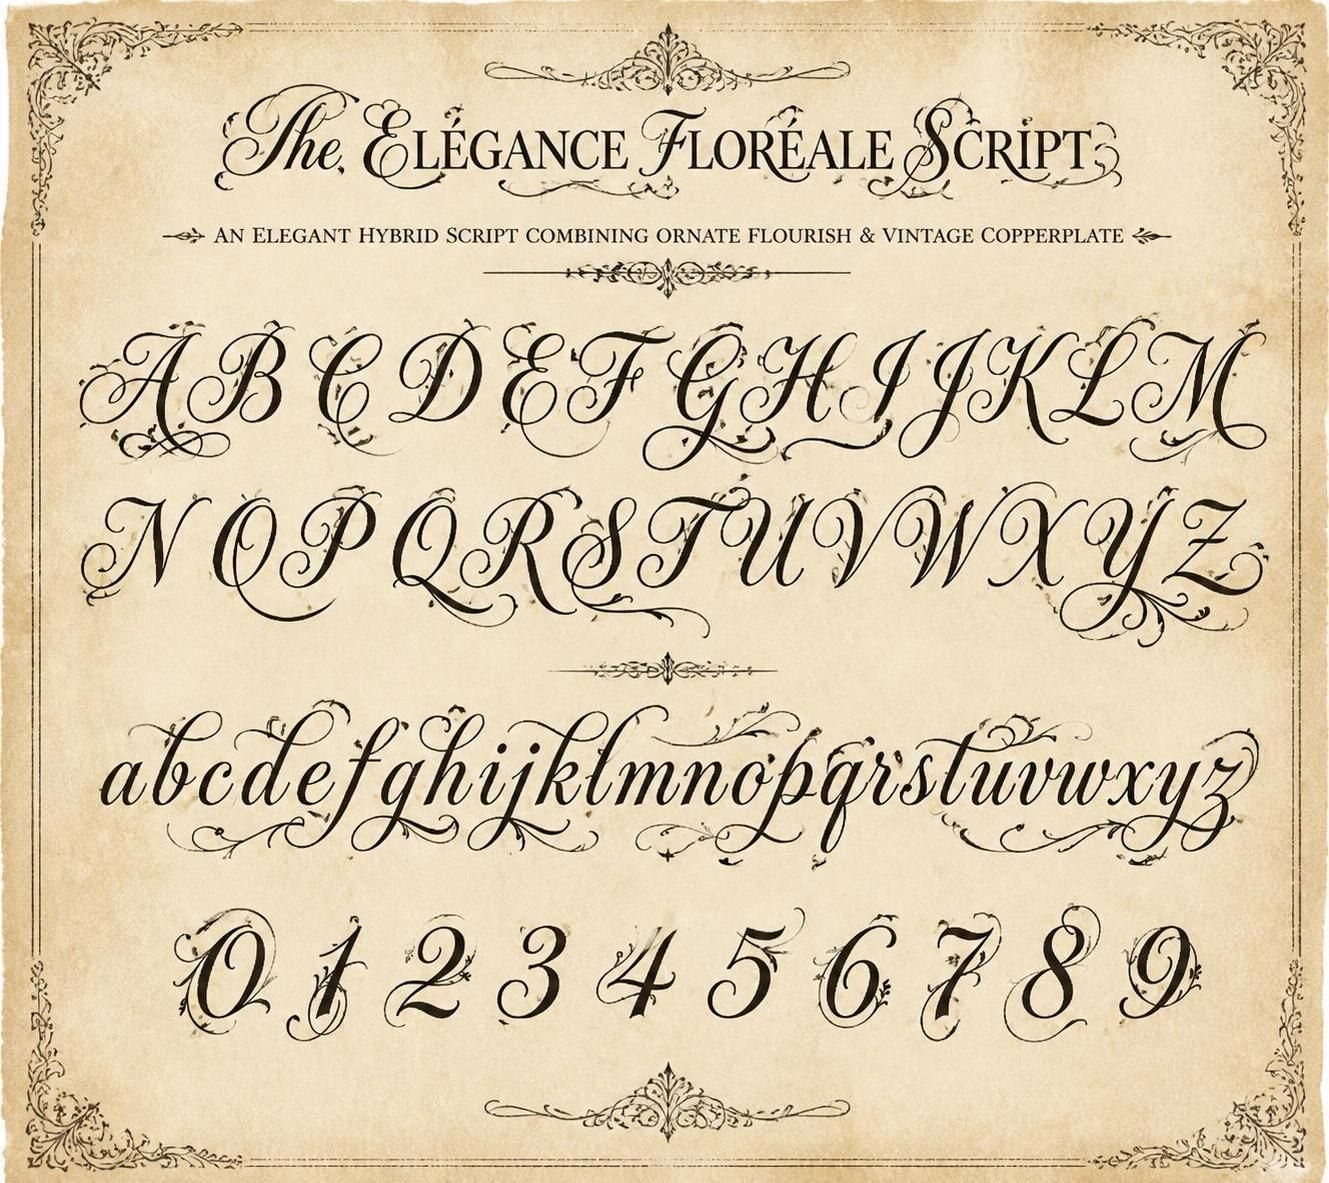 The ELÉGANCE FLORÉALE SCRIPT
AN ELEGANT HYBRID SCRIPT COMBINING ORNATE FLOURISH & VINTAGE COPPERPLATE
A B C D E F G H I J K L M
N O P Q R S T U V W X Y Z
a b c d e f g h i j k l m n o p q r s t u v w x y z
0 1 2 3 4 5 6 7 8 9